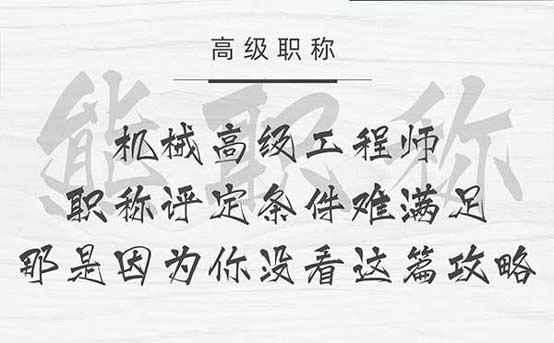 高级职称
能职称
机械高级工程师
职称评定条件难满足
那是因为你没看这篇攻略